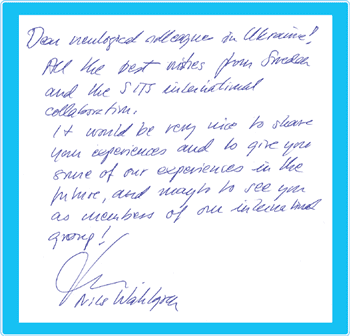 Dear neurological colleagues in Ukraine!
All the best wishes from Sweden
and the SITS international
collaboration.
It would be very nice to share
your experiences and to give you
some of our experiences in the
future, and maybe to see you
as members of our international
group!
Nils Wahlgren